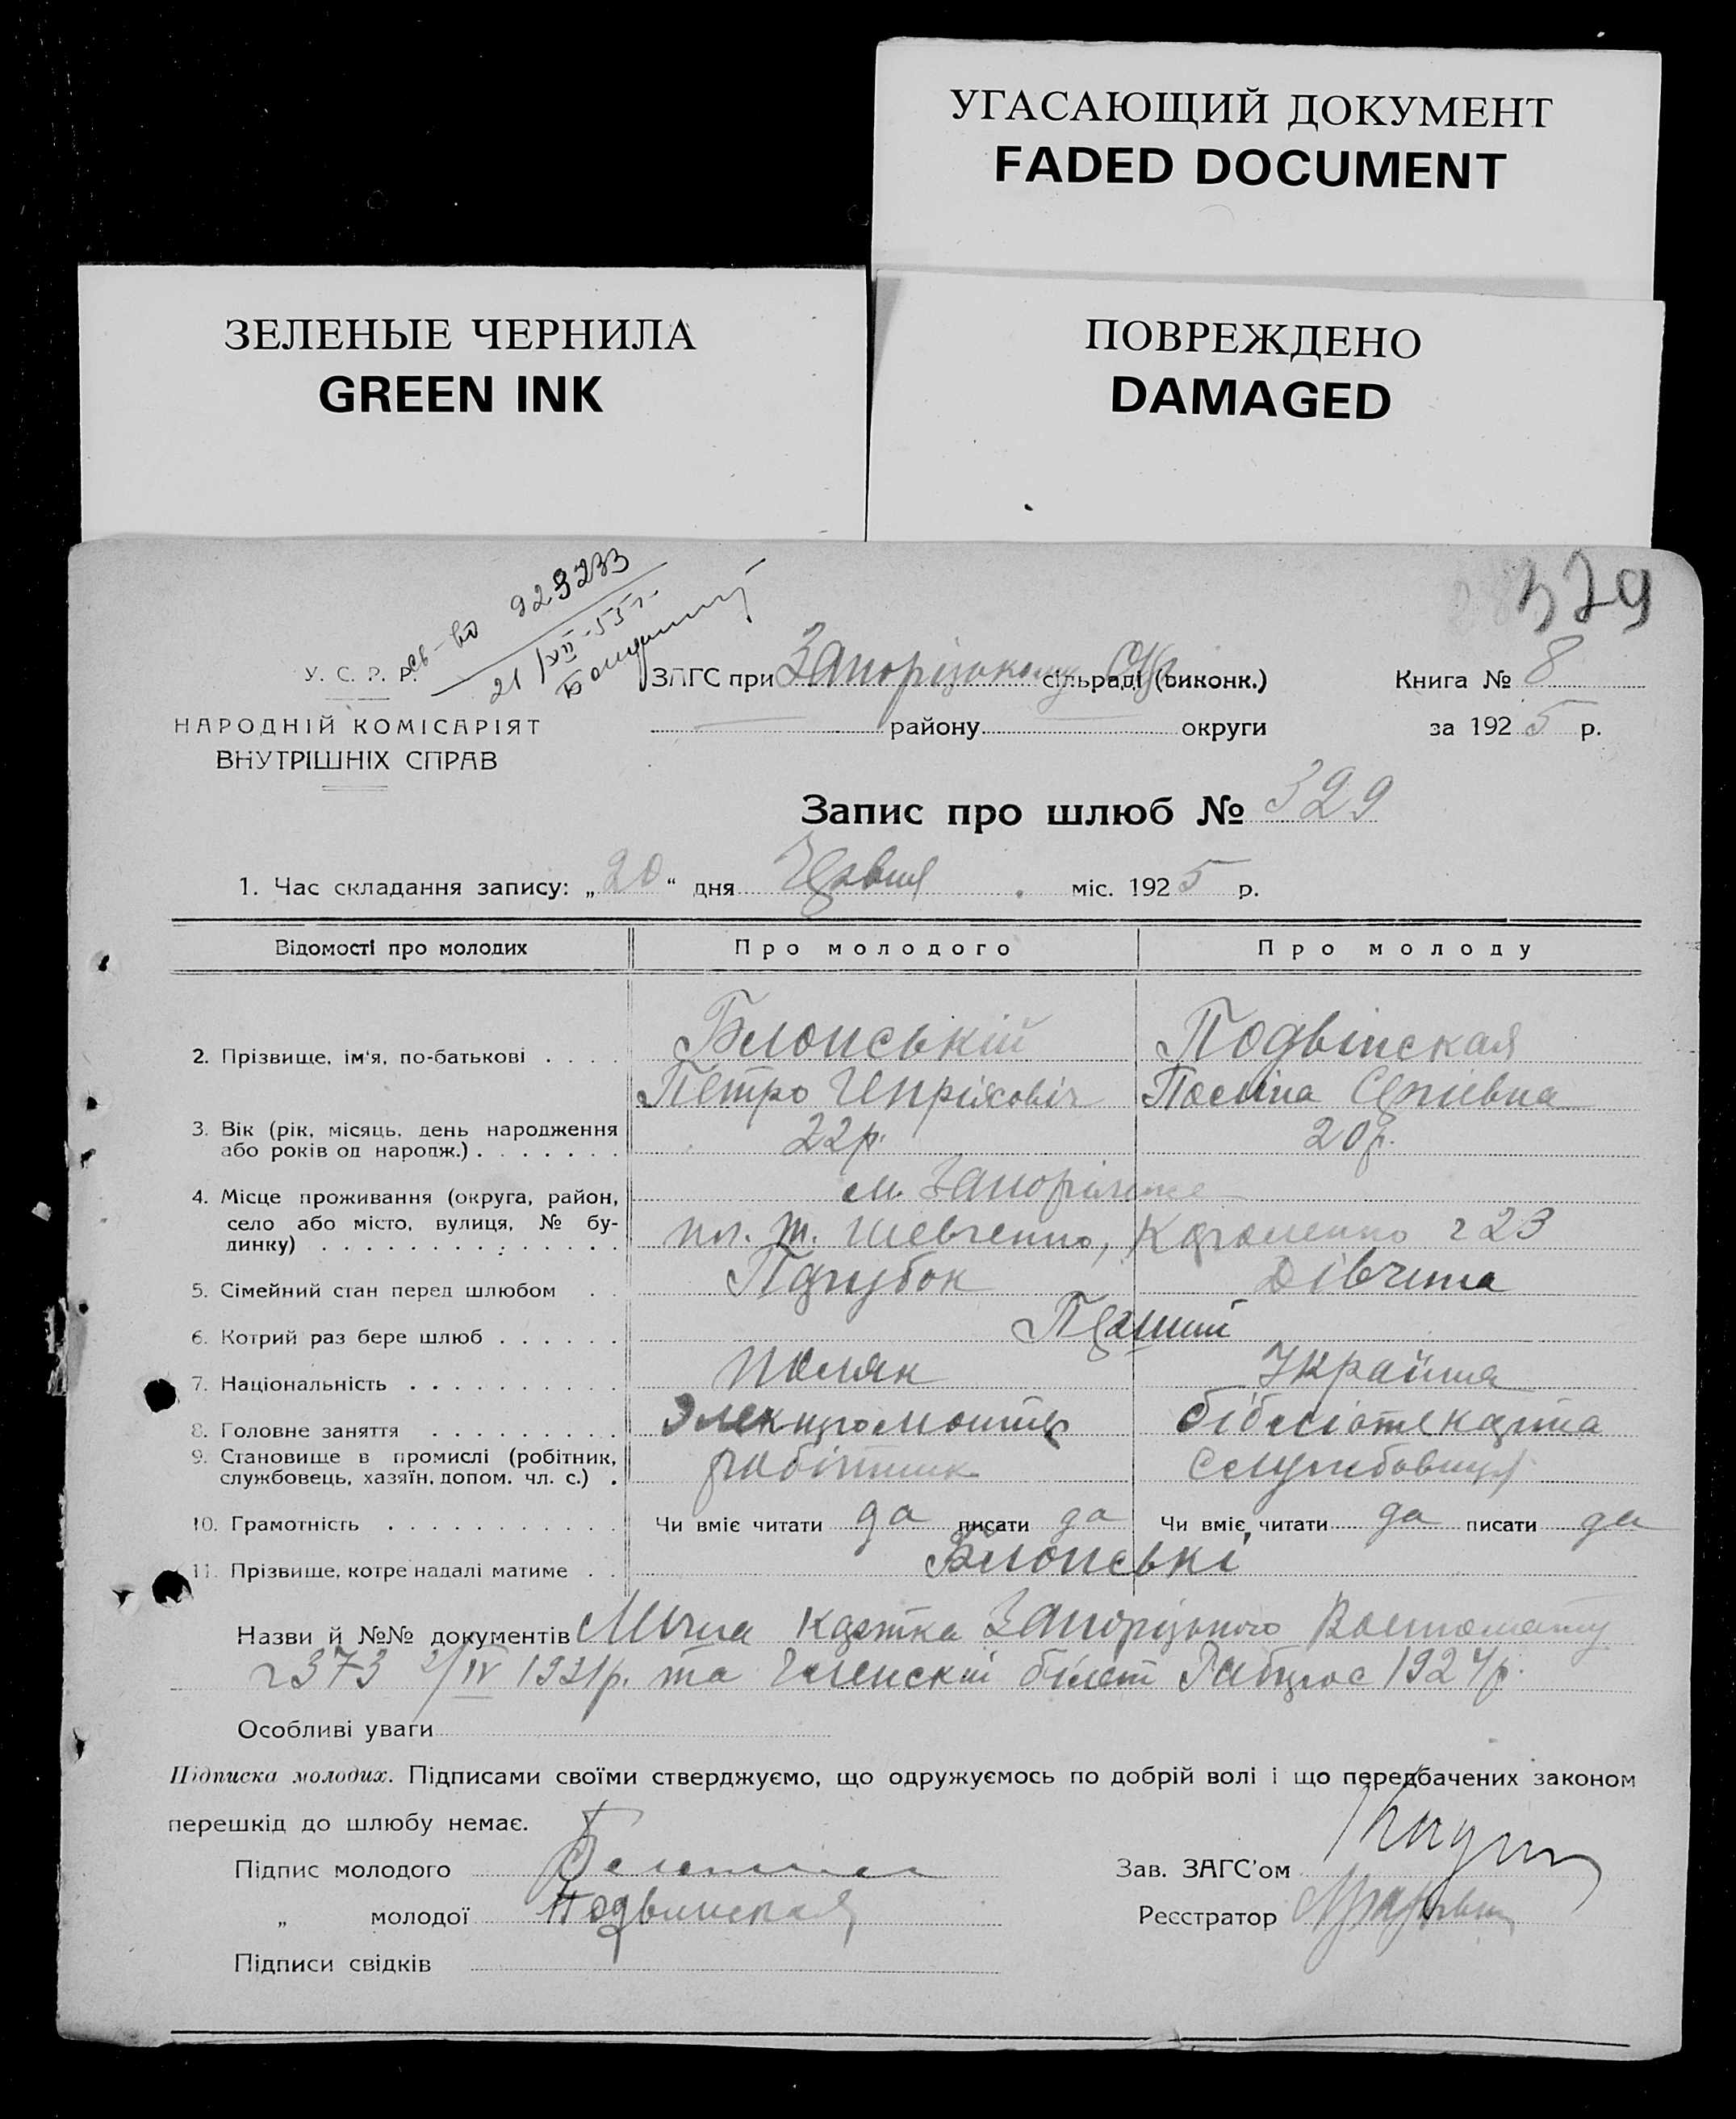 УГАСАЮЩИЙ ДОКУМЕНТ
FADED DOCUMENT
ЗЕЛЕНЫЕ ЧЕРНИЛА
GREEN INK
ПОВРЕЖДЕНО
DAMAGED
329
св-во 923233
21/XII-55г.
У. С. Р. Р.
НАРОДНІЙ КОМІСАРІЯТ
ВНУТРІШНІХ СПРАВ
ЗАГС при Запорізькому сільраді (виконк.)
району округи
Книга № 8
за 1925 р.
Запис про шлюб № 329
1. Час складання запису: „20“ дня Червня міс. 1925 р.
Відомості про молодих Про молодого Про молоду
2. Прізвище, ім'я, по-батькові . . . . Білонській Подвінская
Петро Генріховіч Поліна Сергіевна
3. Вік (рік, місяць, день народження
або років од народж.) . . . . . . . 22р. 20р.
4. Місце проживання (округа, район,
село або місто, вулиця, № бу-
динку) . . . . . . . . . . . . . . .
м. Запоріжже
пл. Т. Шевченко, 23
5. Сімейний стан перед шлюбом . . Парубок Дівчина
6. Котрий раз бере шлюб . . . . . . Перший
7. Національність . . . . . . . . . . Поляк Україна
8. Головне заняття . . . . . . . . . Электромонтер бібліотекарша
9. Становище в промислі (робітник,
службовець, хазяїн, допом. чл. с.) . робітник
10. Грамотність . . . . . . . . . . . Чи вміє читати да писати да Чи вміє читати да писати да
11. Прізвище, котре надалі матиме . . Білонські
Назви й №№ документів Лична картка Запорізького Воєнкомату
373 1921р. та Членскій білет 1924р.
Особливі уваги
Підписка молодих. Підписами своїми стверджуємо, що одружуємось по добрій волі і що передбачених законом
перешкід до шлюбу немає.
Підпис молодого
Зав. ЗАГС'ом
„ молодої Подвинская
Реєстратор
Підписи свідків